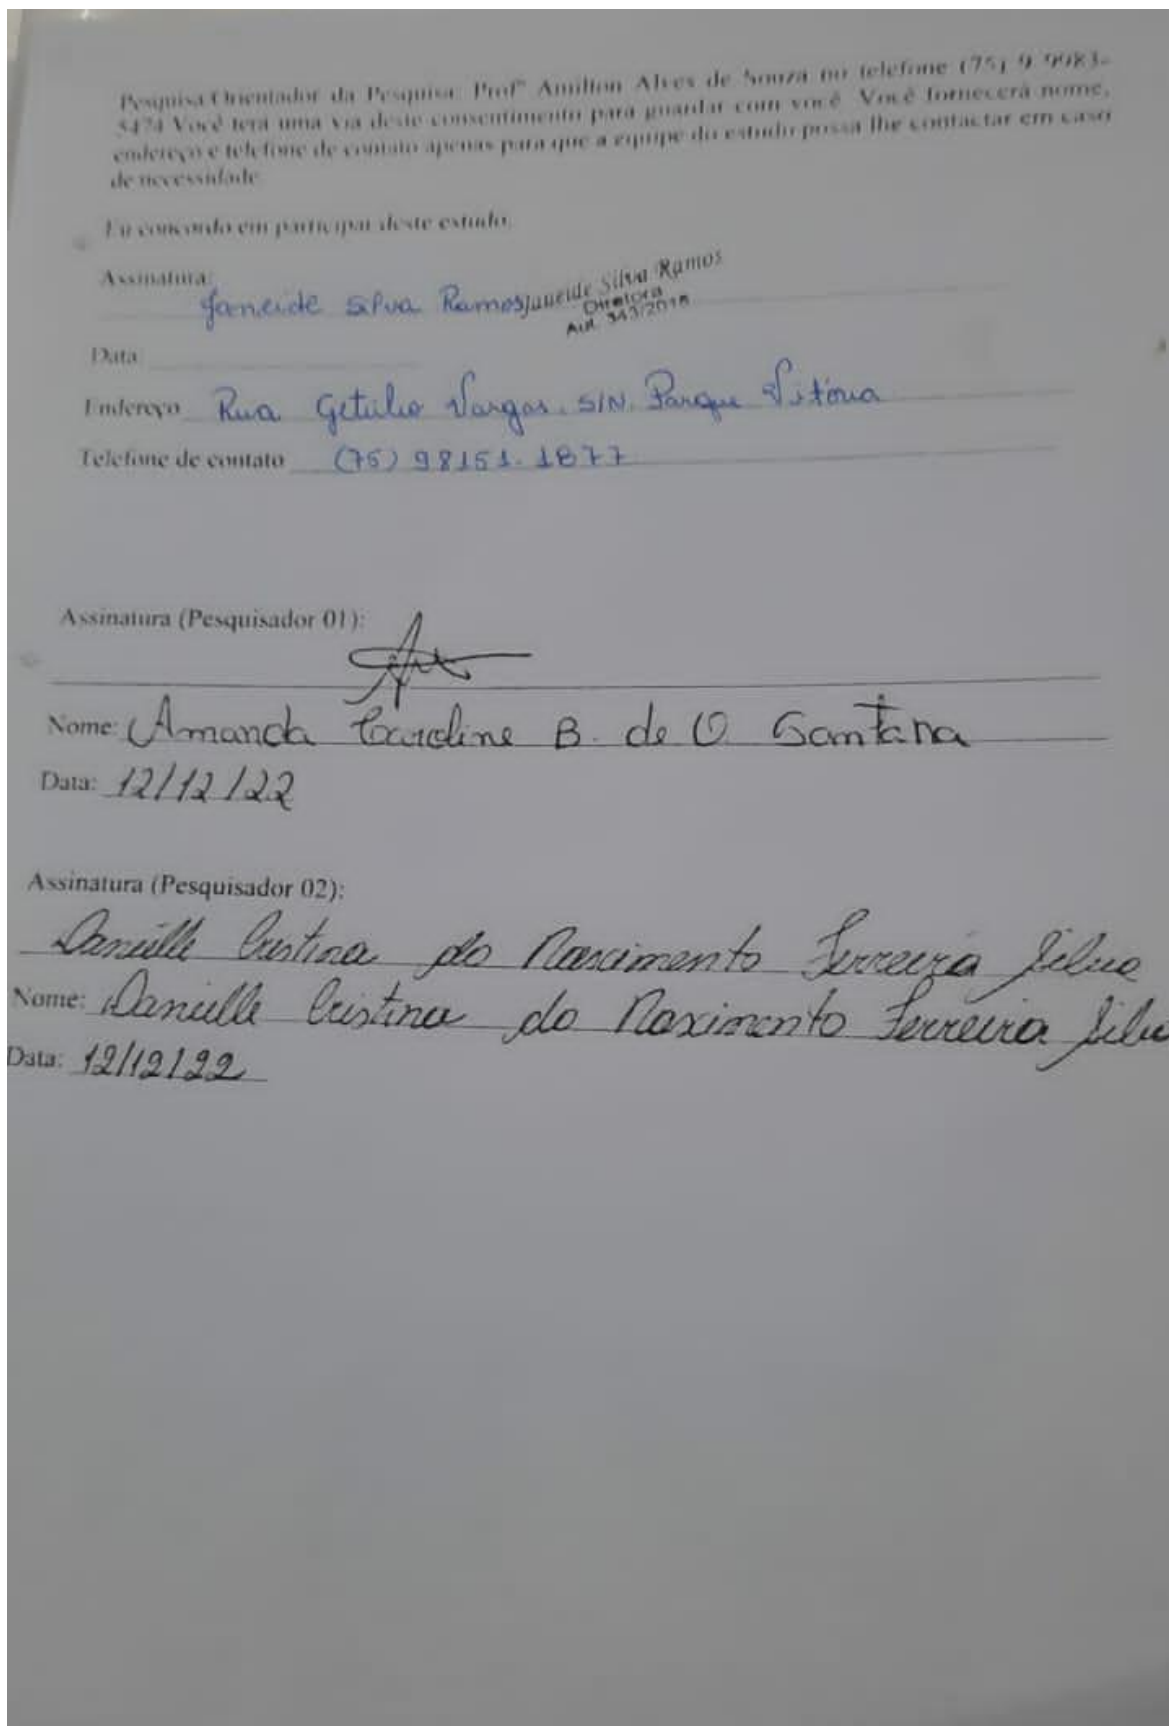 Pesquisa/Orientador da Pesquisa: Profº Amilton Alves de Souza no telefone (75) 9 9983-
5474 Você terá uma via deste consentimento para guardar com você. Você fornecerá nome,
endereço e telefone de contato apenas para que a equipe do estudo possa lhe contactar em caso
de necessidade.
Eu concordo em participar deste estudo.
Assinatura:
Janeide Silva Ramos Janeide Silva Ramos
Diretora
Aut. 343/2018
Data:
Endereço Rua Getulio Vargas, S/N. Parque Vitória
Telefone de contato (75) 98151.1877
Assinatura (Pesquisador 01):
Nome: Amanda Caroline B. de O. Santana
Data: 12/12/22
Assinatura (Pesquisador 02):
Danielle Cristina do Nascimento Ferreira Silva
Nome: Danielle Cristina do Nascimento Ferreira Silva
Data: 12/12/22